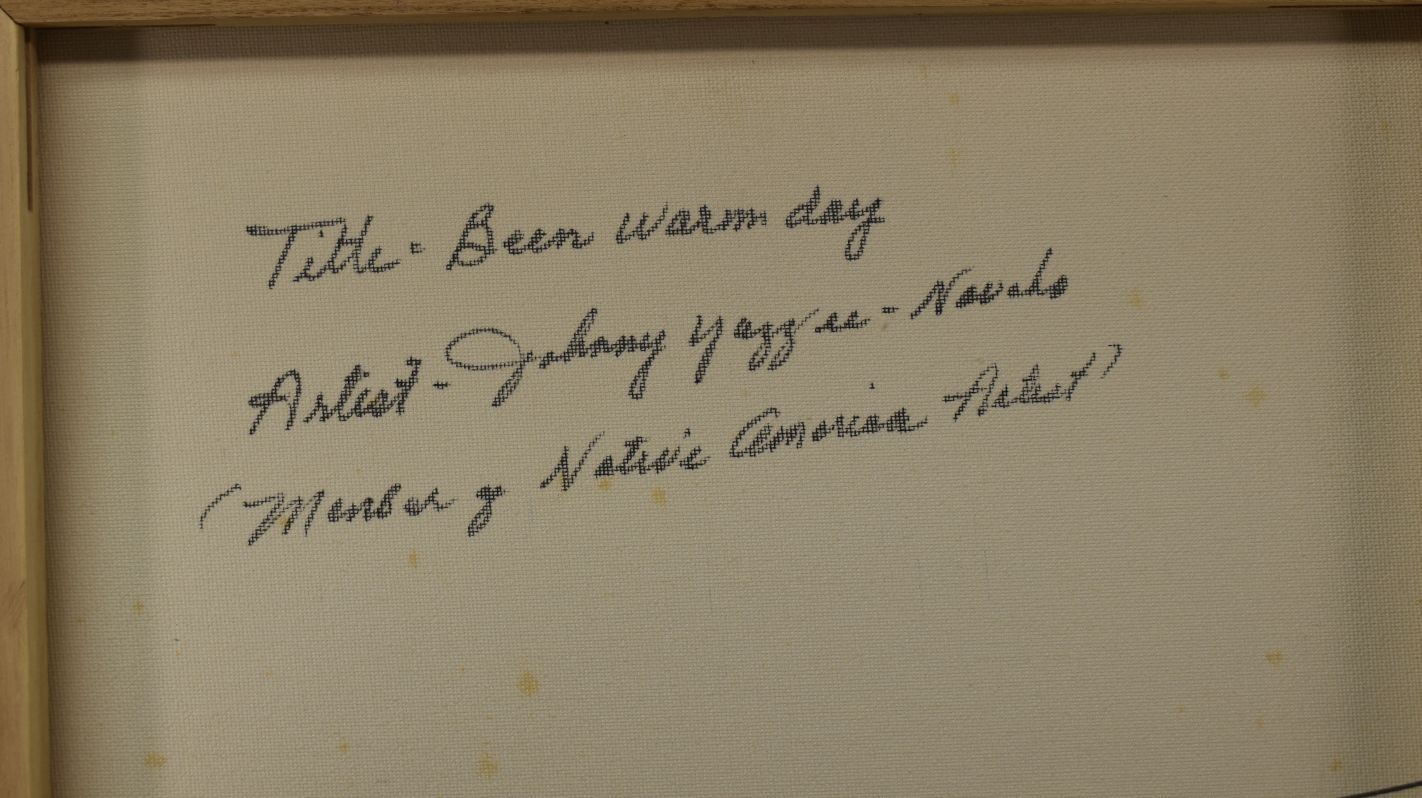 Title - Been warm day
Artist - Johnny Yazzie - Navaho
(Member of Native American Artist)